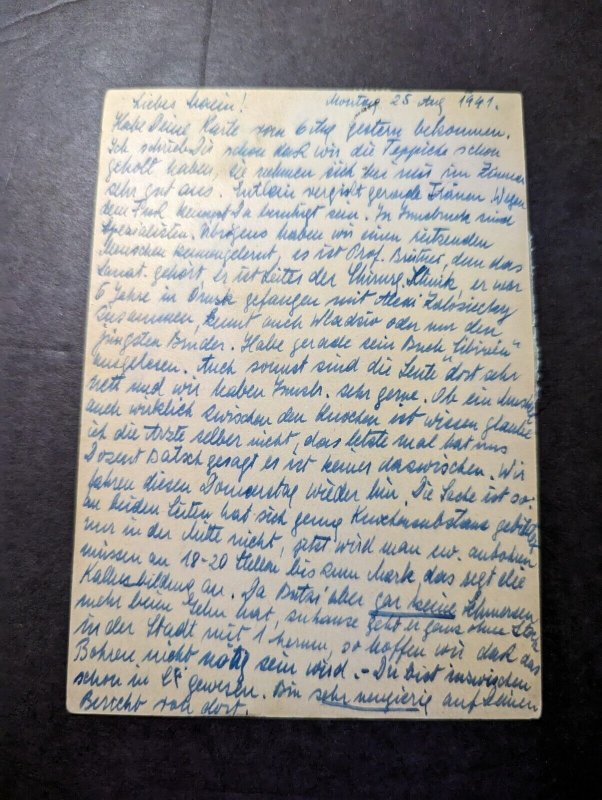 Liebes! Montag 25 Aug 1941.
Habe Deine Karte vom 6 Aug gestern bekommen.
Ich schrieb Dir schon dass wir die Teppiche schon
geholt haben, sie nehmen sich bei uns im Zimmer
sehr gut aus. vergisst gerade Tränen. Wegen
dem Fuss kannst Du beruhigt sein. In Innsbruck sind
Spezialisten. Übrigens haben wir einen reizenden
Menschen kennengelernt, es ist Prof. Breitner, dem das
Sanat. gehört, er ist Leiter der Chirurg. Klinik, er war
6 Jahre in Omsk gefangen mit Alexi
zusammen, kennt auch Wladzio oder nur den
jüngsten Bruder. Habe gerade sein Buch "Sibirien"
ausgelesen. Auch sonst sind die Leute dort sehr
nett und wir haben Innsbr. sehr gerne. Ob ein
auch wirklich zwischen den Knochen ist wissen glaube
ich die Ärzte selber nicht, das letzte mal hat uns
Dozent Batsch gesagt es ist keiner dazwischen. Wir
fahren diesen Donnerstag wieder hin. Die Sache ist so:
an beiden Seiten hat sich genug Knochensubstanz gebildet
nur in der Mitte nicht, jetzt wird man ev. anbohren
müssen an 18-20 Stellen bis zum Mark das regt die
Kallusbildung an. Da Butzi aber gar keine Schmerzen
mehr beim Gehn hat, zuhause geht er ganz ohne Stock
in der Stadt mit 1 herum, so hoffen wir dass das
Bohren nicht nötig sein wird. - Du bist inzwischen
schon in gewesen. Bin sehr neugierig auf Deinen
Bericht von dort.